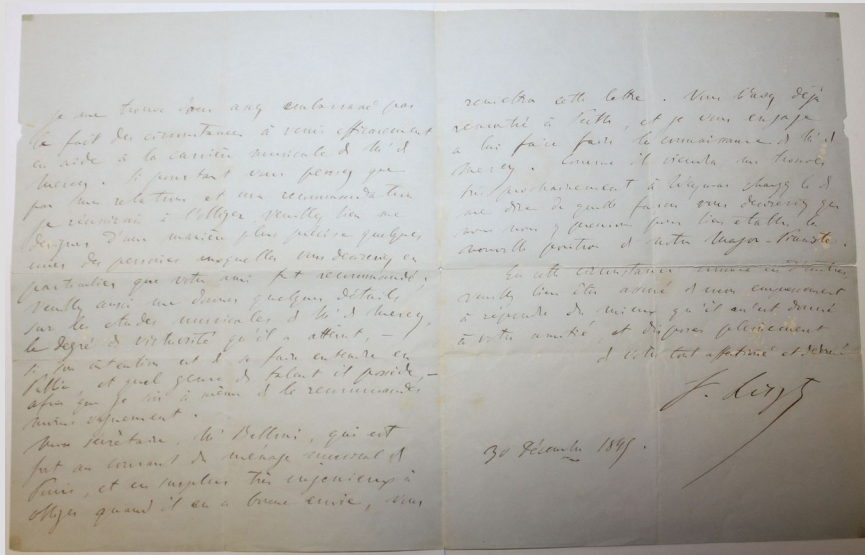 je me trouve
le fait des circonstances à venir efficacement
en aide à la carrière musicale de Mr de
Mercy. Si pourtant vous pensez que
par mes relations et ma recommandation
je réussirais à l'obliger, veuillez bien me
désigner d'une manière plus précise quelques
unes des personnes auxquelles vous
particulier que votre ami fut recommandé,
veuillez aussi me donner quelques détails
sur les études musicales de Mr de Mercy,
le degré de virtuosité qu'il a atteint, –
si son intention est de se faire entendre en
public, et quel genre de talent il possède, –
afin que je sois à même de le recommander
moins vaguement.
Mon secrétaire, Mr Belloni, qui est
fort au courant du ménage musical de
Paris, et en surplus très ingénieux à
obliger quand il en a bonne envie, vous
remettra cette lettre. Vous l'avez déjà
rencontré à et je vous engage
à lui faire faire la connaissance de Mr de
Mercy. Comme il viendra me trouver
très prochainement à
me dire de quelle façon vous
nous nous y pour bien établir la
nouvelle position de notre Major-Pianiste.
En cette circonstance comme en d'autres,
veuillez bien être assuré de mon empressement
à répondre du mieux qu'il m'est donné
à votre amitié, et disposer pleinement
de votre tout affectionné et dévoué
F. Liszt
30 Décembre 1845.